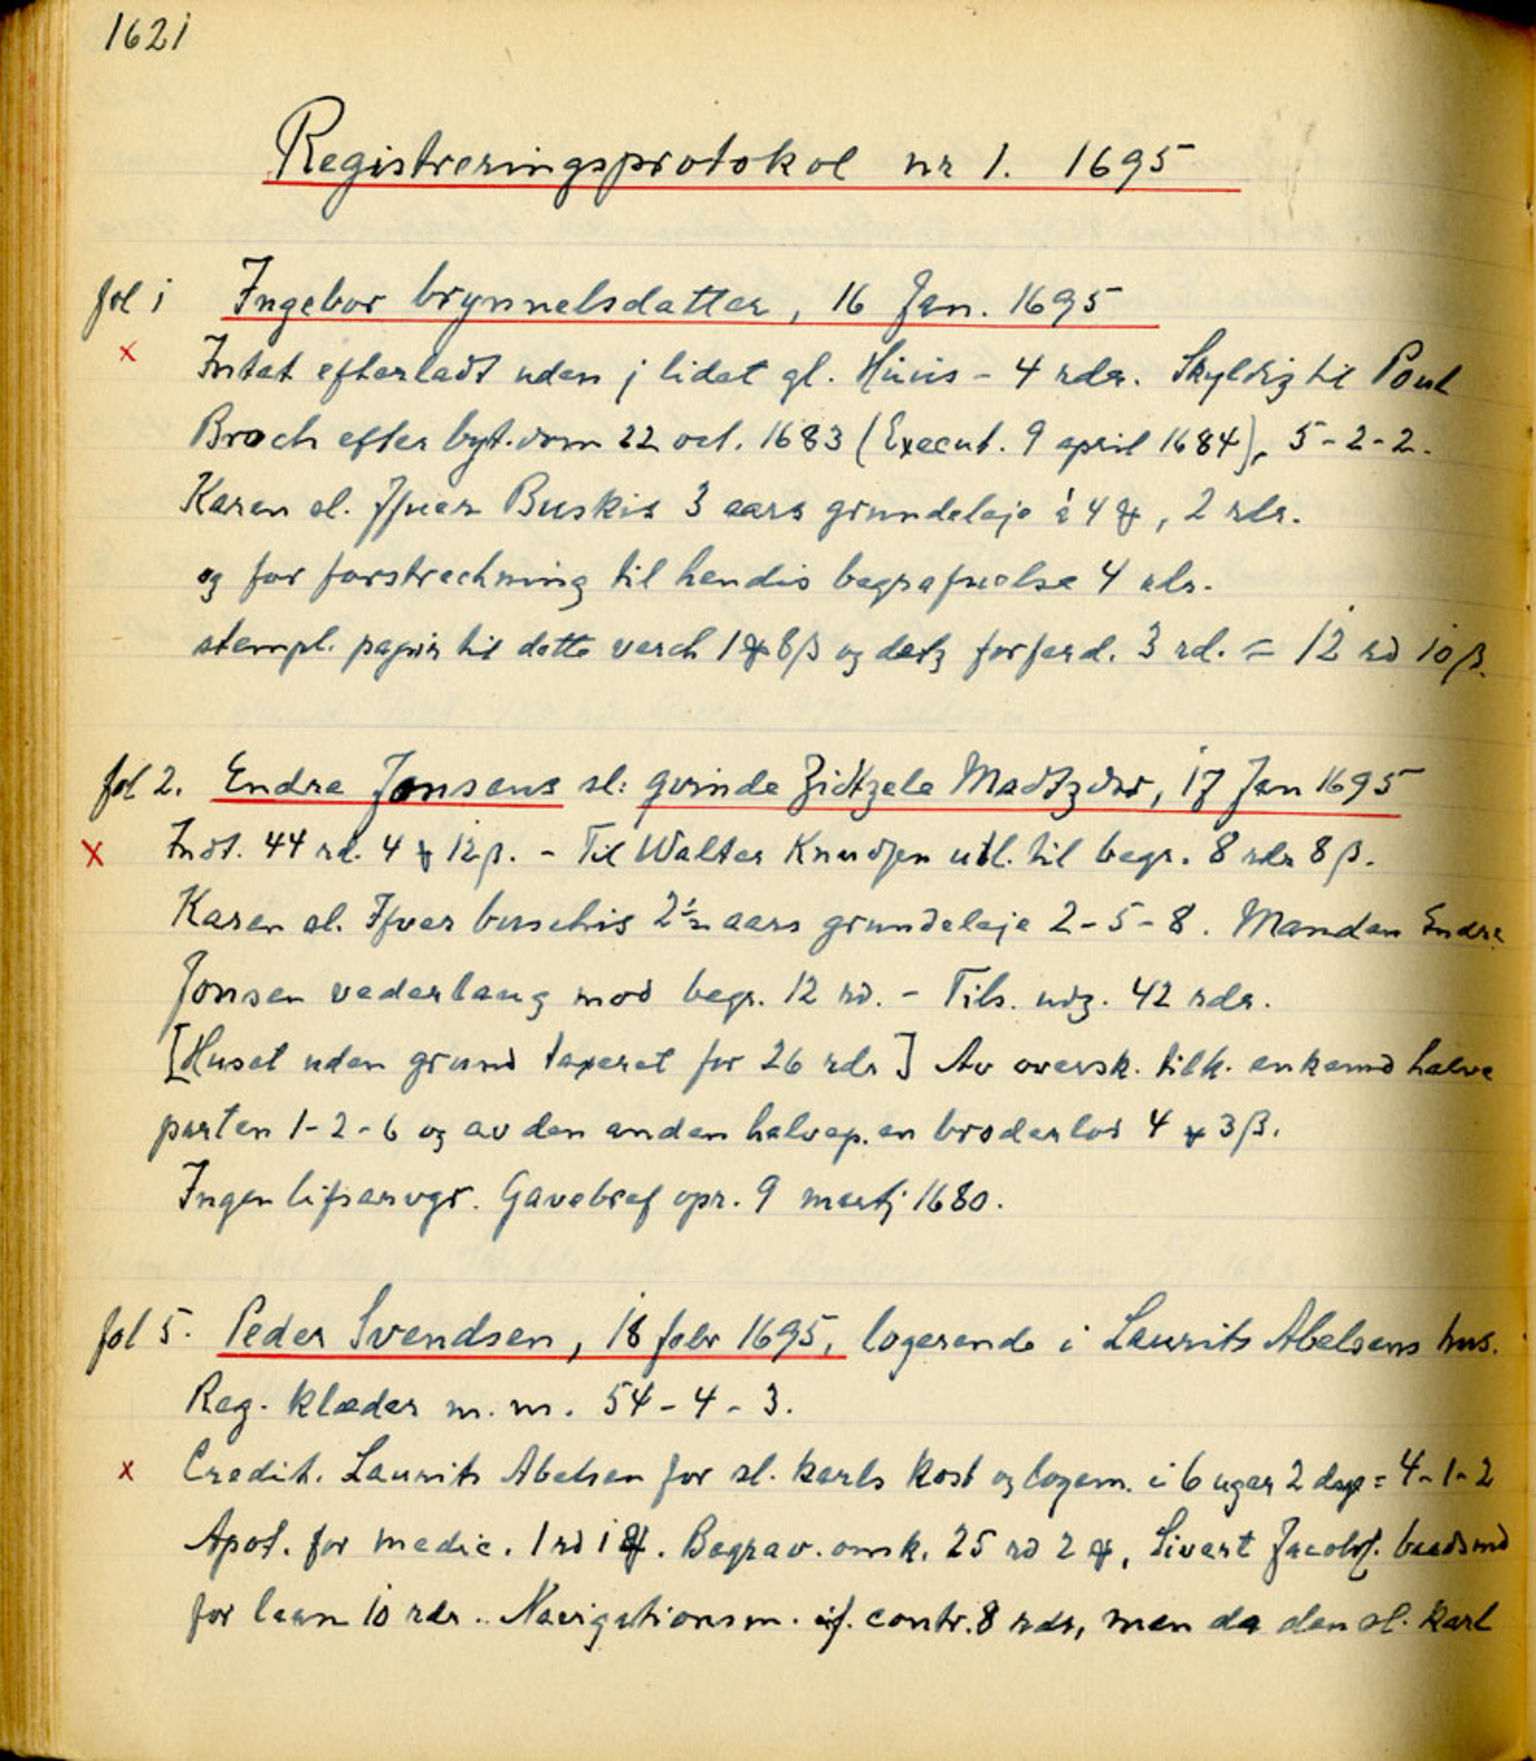 1621
Registreringsprotokol nr 1. 1695
fol 1 Ingebor brynnelsdatter, 16 Jan. 1695
x Intet efterladt uden j lidet gl. Huus - 4 rdr. Skyldig til Poul
Broch efter byt. dom 22 oct. 1683 (Execut. 9 april 1684), 5-2-2.
Karen sl. Ifuer Buskis 3 aars grundeleje à 4 ℳ, 2 rdr.
og for forstrechning til hendis begrafuelse 4 rdr.
stempl. papir til dette verch 1 ℳ 8 β og detz forferd. 3 rd. = 12 rd 10 β.
fol 2. Endre Jonsens sl: qvinde Zidtzele Madtzdtr, 17 Jan 1695
x Indt. 44 rd. 4 ℳ 12 β. - Til Walter Knudsen utl. til begr. 8 rdr 8 β.
Karen sl. Ifver buschis 2½ aars grundeleje 2-5-8. Manden Endre
Jonsen vederlaug mod begr. 12 rd. - Tils. udg. 42 rdr.
[Huset uden grund taxeret for 26 rdr] Av oversk. tilk. enkemd halve
parten 1-2-6 og av den anden halvep. en broderlod 4 ℳ 3 β.
Ingen lifsarvgr. Gavebref opr. 9 martj 1680.
fol 5. Peder Svendsen, 18 febr 1695, logerende i Laurits Abelsens hus.
Reg. klæder m. m. 54-4-3.
x Credit. Laurits Abelsen for sl. karls kost og logem. i 6 uger 2 dage = 4-1-2
Apot. for medic. 1 rd 1 ℳ. Begrav. omk. 25 rd 2 ℳ, Sivert Jacobs. baadsmd
for laan 10 rdr. Navigationsm. contr. 8 rdr, men da den sl. karl